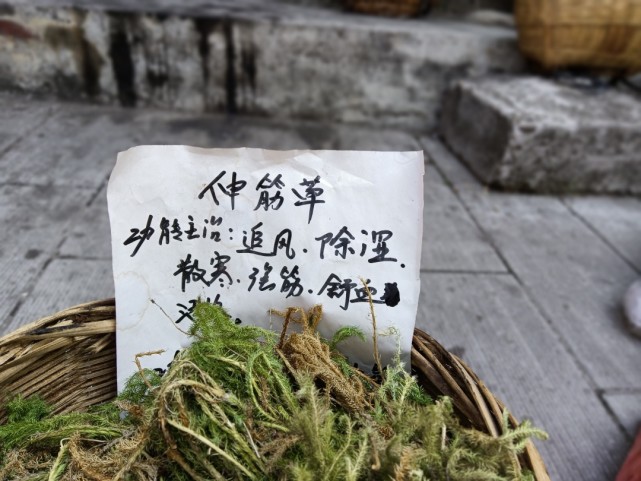 伸筋草
功能主治：追风．除湿．
散寒．强筋．舒血